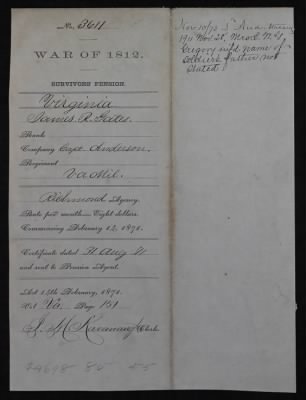 No. 3611
WAR OF 1812.
SURVIVORS PENSION.
Virginia
James R. Gates
Rank
Company Capt Anderson.
Regiment
Va Mil.
Richmond Agency.
Rate per month—Eight dollars.
Commencing February 14, 1871.
Certificate dated Aug
and sent to Pension Agent.
Act 14th February, 1871.
Vol Va. Page 151
Clerk.
Nov 10/13
1911 Nov. 28,
Gregory wife name of
soldiers father not
stated